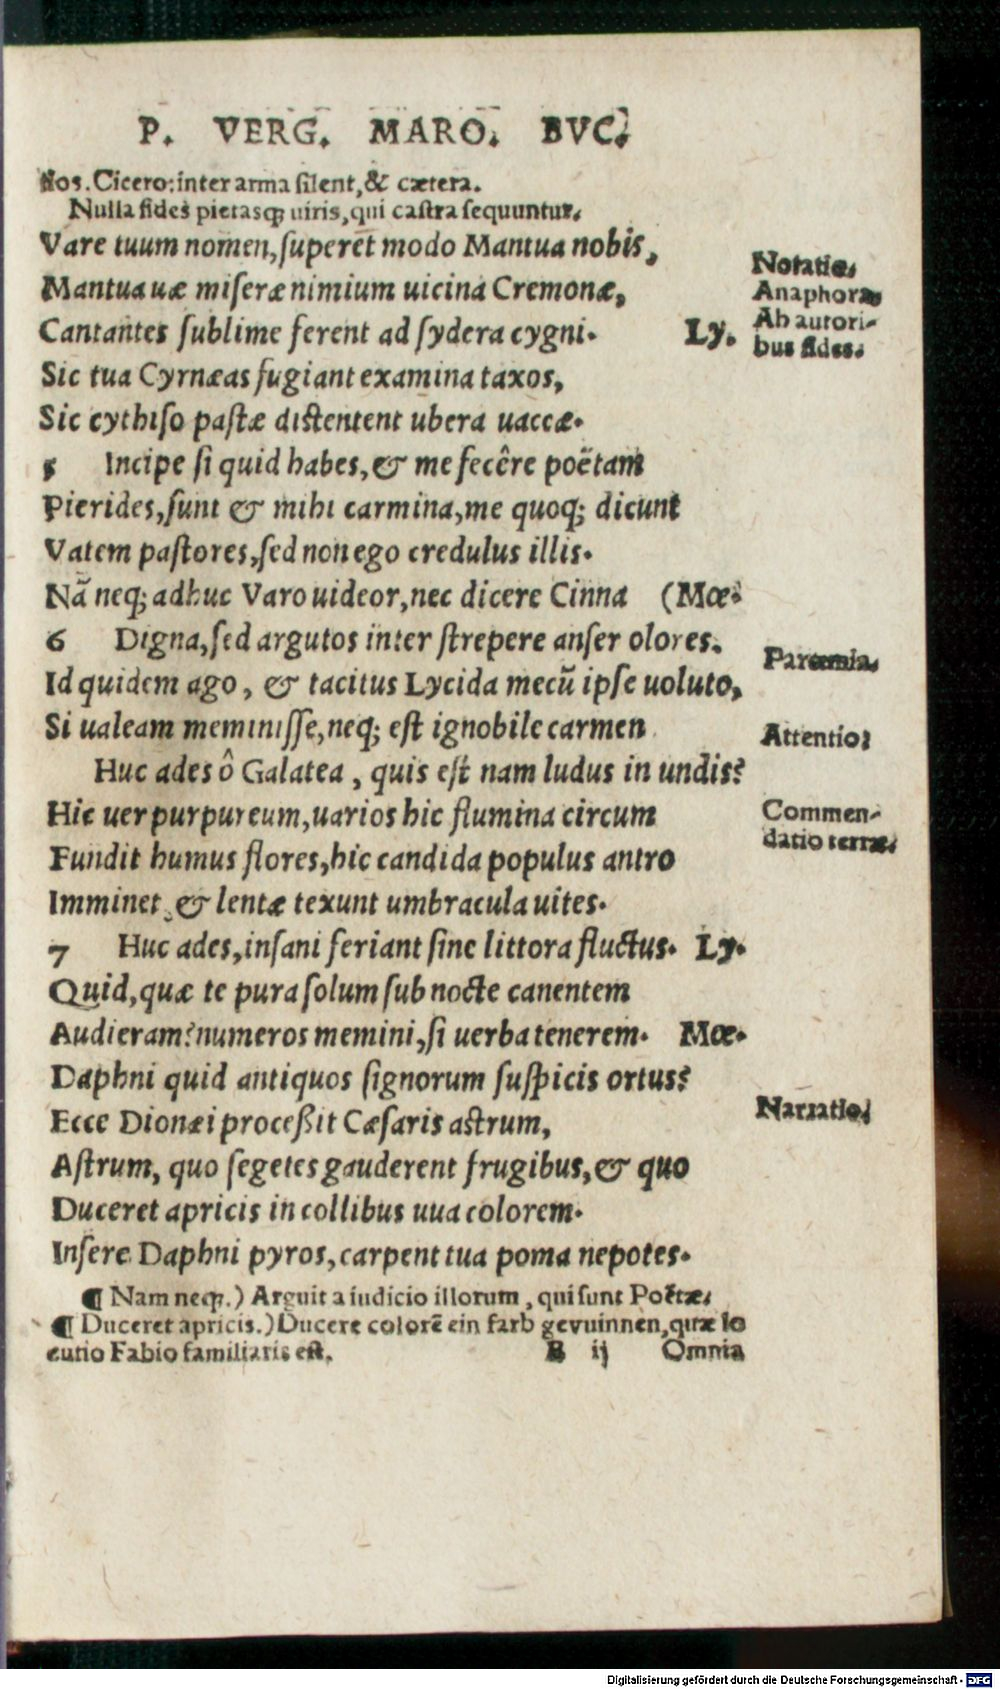 P. VERG. MARO. BVC.
nos. Cicero: inter arma silent, & cætera.
Nulla fides pietasq; uiris, qui castra sequuntur.
Vare tuum nomen, superet modo Mantua nobis,
Notatio.
Mantua uæ miseræ nimium uicina Cremonæ,
Anaphora
Cantantes sublime ferent ad sydera cygni. Ly.
Ab autori-
bus fides.
Sic tua Cyrnæas fugiant examina taxos,
Sic cythiso pastæ distentent ubera uaccæ.
5 Incipe si quid habes, & me fecêre poëtam
Pierides, sunt & mihi carmina, me quoq; dicunt
Vatem pastores, sed non ego credulus illis.
Nã neq; adhuc Varo uideor, nec dicere Cinna (Mœ.
6 Digna, sed argutos inter strepere anser olores.
Parœmia.
Id quidem ago, & tacitus Lycida mecũ ipse uoluto,
Si ualeam meminisse, neq; est ignobile carmen.
Attentio.
Huc ades ô Galatea, quis est nam ludus in undis?
Hic uer purpureum, uarios hic flumina circum
Commen-
datio terræ.
Fundit humus flores, hic candida populus antro
Imminet, & lentæ texunt umbracula uites.
7 Huc ades, insani feriant sine littora fluctus. Ly.
Quid, quæ te pura solum sub nocte canentem
Audieram? numeros memini, si uerba tenerem. Mœ.
Daphni quid antiquos signorum suspicis ortus?
Narratio.
Ecce Dionæi proceßit Cæsaris astrum,
Astrum, quo segetes gauderent frugibus, & quo
Duceret apricis in collibus uua colorem.
Insere Daphni pyros, carpent tua poma nepotes.
¶ Nam neq;.) Arguit a iudicio illorum, qui sunt Poëtæ.
¶ Duceret apricis.) Ducere colorẽ ein farb gevuinnen, quæ lo
cutio Fabio familiaris est. B ij Omnia
Digitalisierung gefördert durch die Deutsche Forschungsgemeinschaft - DFG